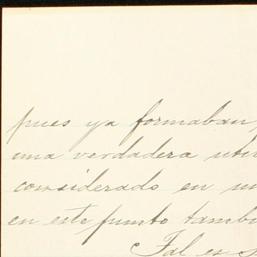 pues ya formaban,
una verdadera
considerado en
en este punto tambi
Tal es